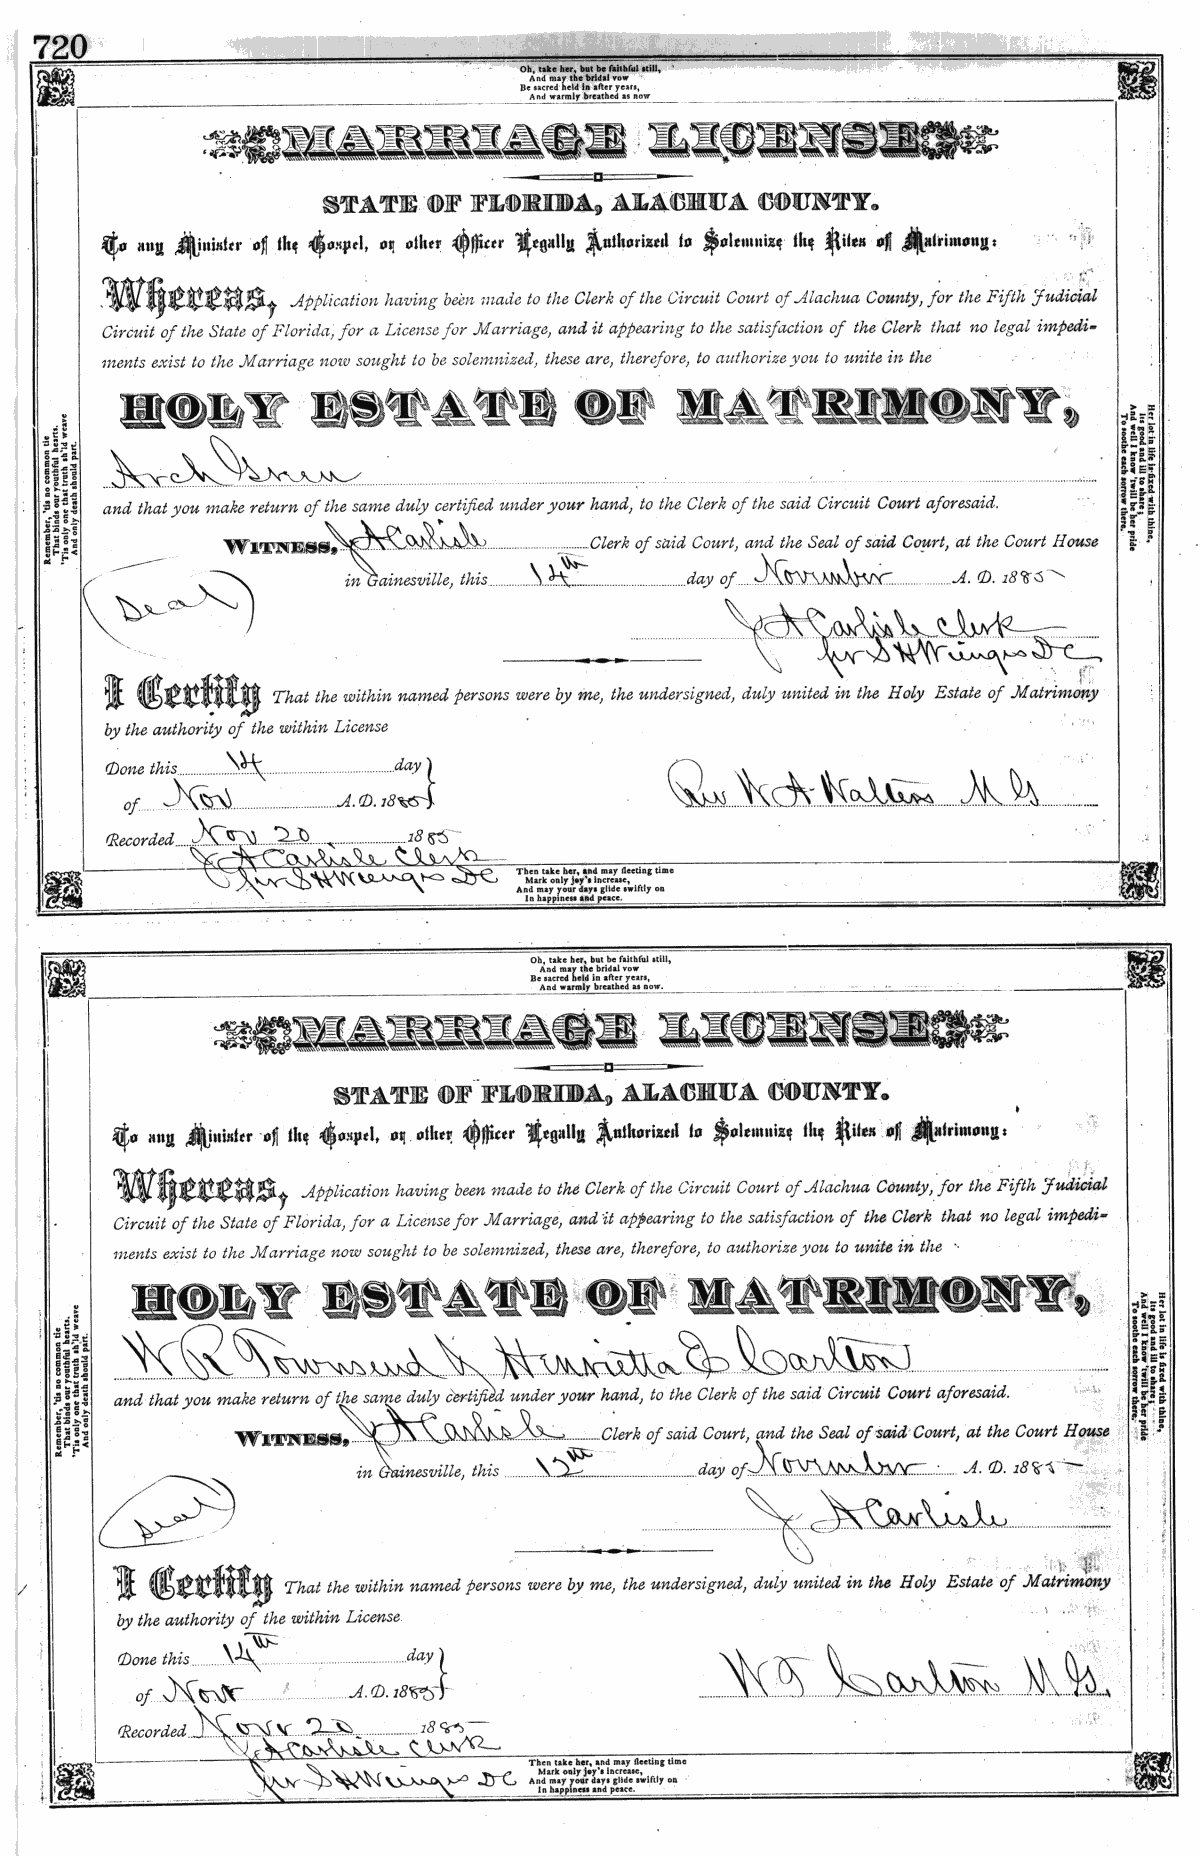 720
Oh, take her, but be faithful still,
And may the bridal vow
Be sacred held in after years,
And warmly breathed as now
MARRIAGE LICENSE
STATE OF FLORIDA, ALACHUA COUNTY.
To any Minister of the Gospel, or other Officer Legally Authorized to Solemnize the Rites of Matrimony:
Whereas, Application having been made to the Clerk of the Circuit Court of Alachua County, for the Fifth Judicial
Circuit of the State of Florida, for a License for Marriage, and it appearing to the satisfaction of the Clerk that no legal impedi-
ments exist to the Marriage now sought to be solemnized, these are, therefore, to authorize you to unite in the
HOLY ESTATE OF MATRIMONY,
Remember, 'tis no common tie
That binds our youthful hearts.
'Tis only one that truth sh'ld weave
And only death should part.
Her lot in life is fixed with thine,
Its good and ill to share;
And well I know 'twill be her pride
To soothe each sorrow there.
Arch Green
and that you make return of the same duly certified under your hand, to the Clerk of the said Circuit Court aforesaid.
WITNESS, J A Carlisle Clerk of said Court, and the Seal of said Court, at the Court House
in Gainesville, this 14th day of November A. D. 1885
(Seal)
J A Carlisle Clerk
pr S H Wienges DC
I Certify That the within named persons were by me, the undersigned, duly united in the Holy Estate of Matrimony
by the authority of the within License
Done this 14 day
of Nov A. D. 1885
Rev W A Walters M G
Recorded Nov 20 1885
J A Carlisle Clerk
pr S H Wienges DC
Then take her, and may fleeting time
Mark only joy's increase,
And may your days glide swiftly on
In happiness and peace.
Oh, take her, but be faithful still,
And may the bridal vow
Be sacred held in after years,
And warmly breathed as now.
MARRIAGE LICENSE
STATE OF FLORIDA, ALACHUA COUNTY.
To any Minister of the Gospel, or other Officer Legally Authorized to Solemnize the Rites of Matrimony:
Whereas, Application having been made to the Clerk of the Circuit Court of Alachua County, for the Fifth Judicial
Circuit of the State of Florida, for a License for Marriage, and it appearing to the satisfaction of the Clerk that no legal impedi-
ments exist to the Marriage now sought to be solemnized, these are, therefore, to authorize you to unite in the
HOLY ESTATE OF MATRIMONY,
Remember, 'tis no common tie
That binds our youthful hearts.
'Tis only one that truth sh'ld weave
And only death should part.
Her lot in life is fixed with thine,
Its good and ill to share;
And well I know 'twill be her pride
To soothe each sorrow there.
W R Townsend & Henrietta E Carlton
and that you make return of the same duly certified under your hand, to the Clerk of the said Circuit Court aforesaid.
WITNESS, J A Carlisle Clerk of said Court, and the Seal of said Court, at the Court House
in Gainesville, this 12th day of November A. D. 1885
(Seal)
J A Carlisle
I Certify That the within named persons were by me, the undersigned, duly united in the Holy Estate of Matrimony
by the authority of the within License
Done this 14th day
of Novr A. D. 1885
W T Carlton M G.
Recorded Novr 20 1885
J A Carlisle Clerk
pr S H Wienges DC
Then take her, and may fleeting time
Mark only joy's increase,
And may your days glide swiftly on
In happiness and peace.